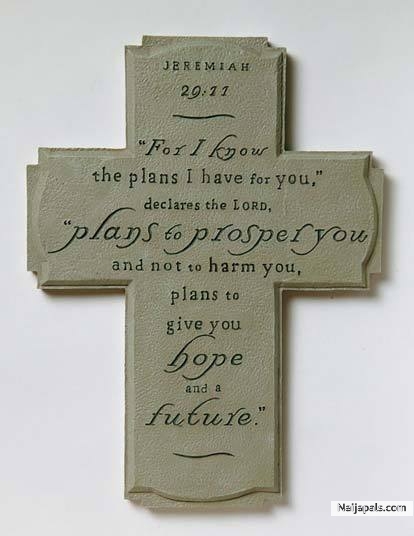 JEREMIAH
29:11
"For I know
the plans I have for you,"
declares the LORD,
"plans to prosper you
and not to harm you,
plans to
give you
hope
and a
future."
Naijapals.com